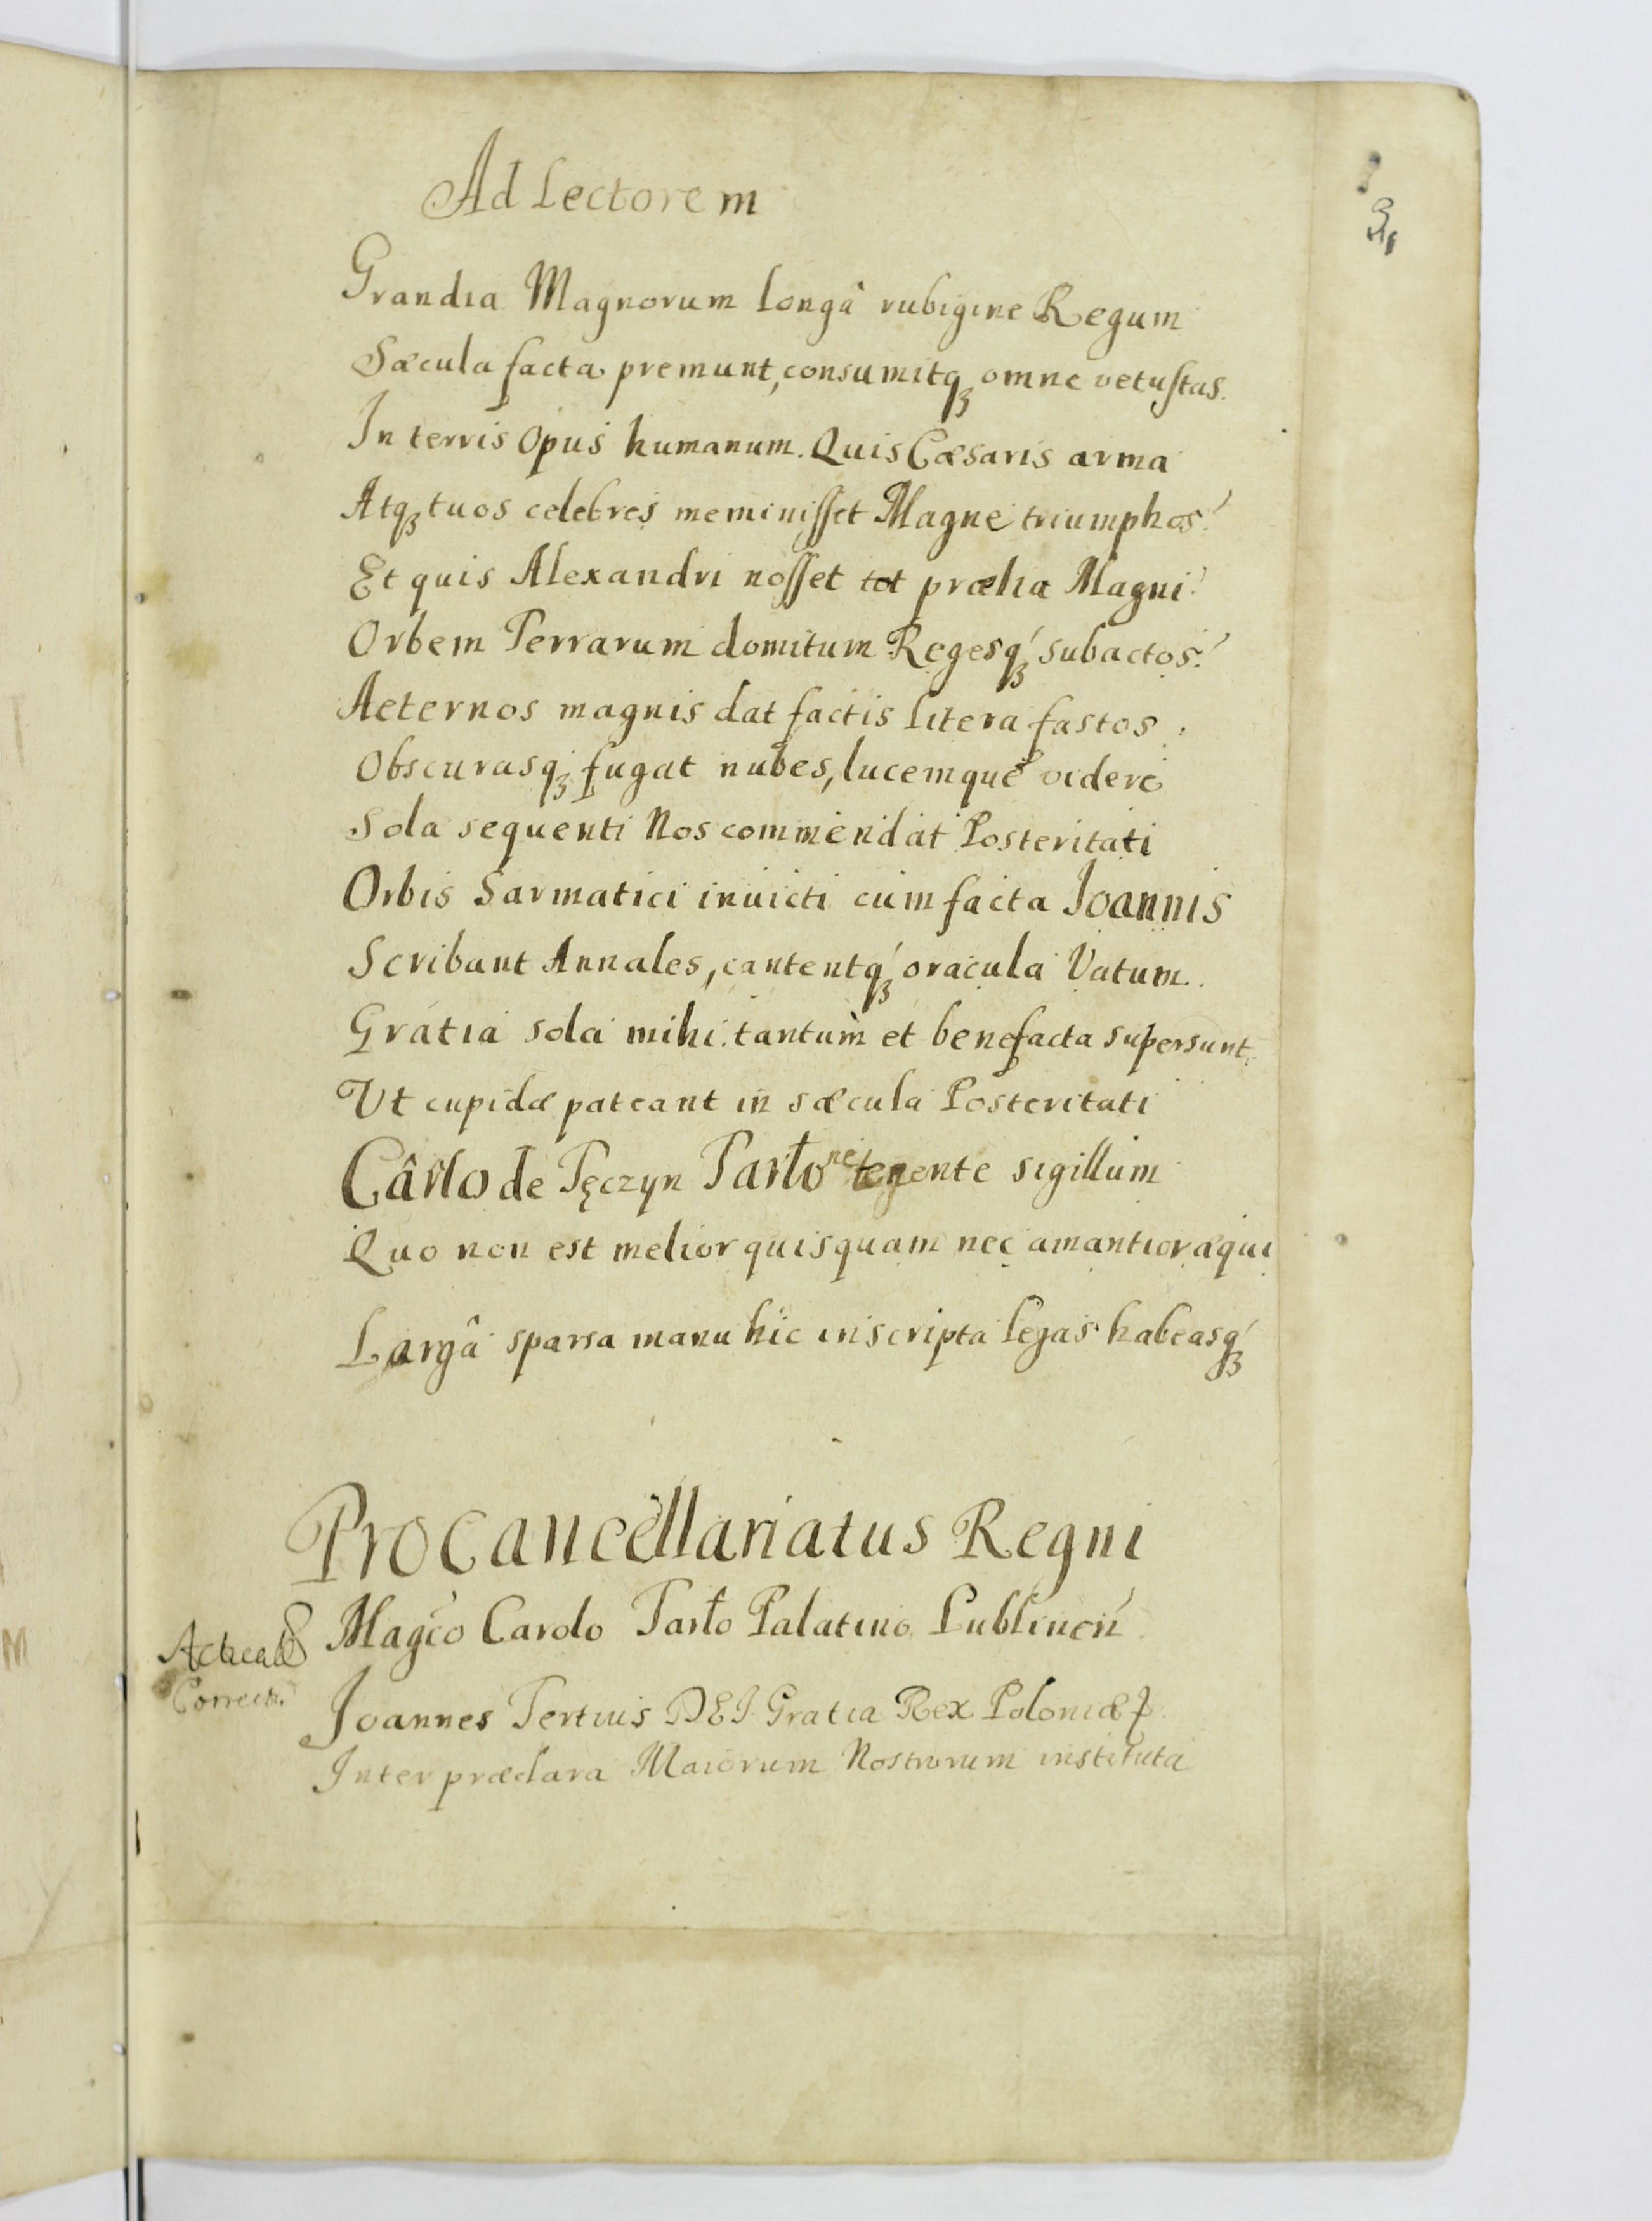 Ad Lectorem
Grandia Magnorum longâ rubigine Regum
Sæcula facta premunt, consumitqꝫ omne vetuſtas.
In terris Opus humanum. Quis Cæsaris arma
Atqꝫ tuos celebres meminiſſet Magne triumphos?
Et quis Alexandri noſſet tot prælia Magni?
Orbem Terrarum domitum Regesqꝫ́ subactos?
Aeternos magnis dat factis litera fastos:
Obscurasqꝫ fugat nubes, lucemque videre
Sola sequenti Nos commendat Posteritati
Orbis Sarmatici inuicti cum facta Joannis
Scribant Annales, cantentqꝫ́ oracula Vatum.
Gratia sola mihi tantum et benefacta supersunt.
Ut cupidæ pateant in sæcula Posteritati
Cârlo de Tęczyn Tarło ne tenente sigillum
Quo non est melior quisquam nec amantior æqui
Largâ sparsa manu hic inscripta legas habeasqꝫ́
Procancellariatus Regni
Magco Carolo Tarło Palatino Lublinen̄
Correct.
Joannes Tertius DEI Gratia Rex Poloniæ
Inter præclara Maiorum Nostrorum instituta